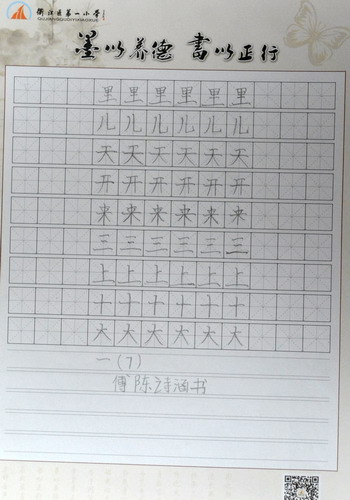 衢江区第一小学
QUJIANGQUDIYIXIAOXUE
墨以养德 書以正行
里里里里里里
儿儿儿儿儿儿
天天天天天天
开开开开开开
来来来来来来
三三三三三三
上上上上上上
十十十十十十
大大大大大大
一(7)
傅陈诗涵书